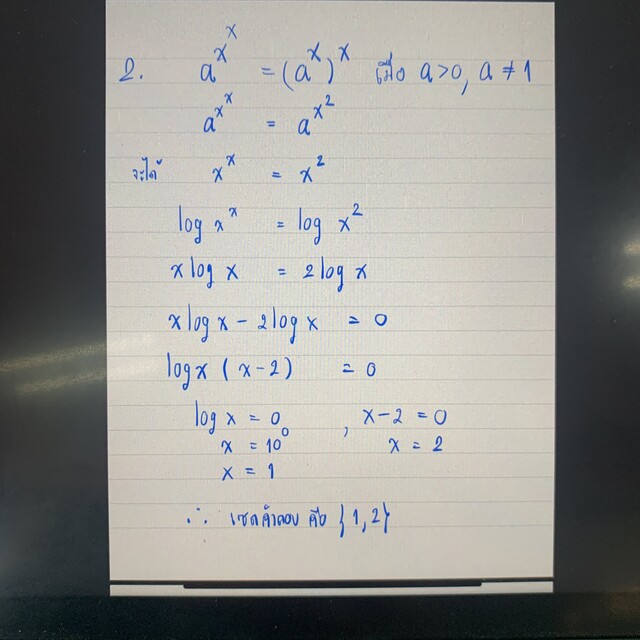 2. a^{x^x} = (a^x)^x เมื่อ a>0, a ≠ 1
a^{x^x} = a^{x^2}
จะได้ x^x = x^2
log x^x = log x^2
x log x = 2 log x
x log x - 2 log x = 0
log x (x-2) = 0
log x = 0 , x-2 = 0
x = 10^0 x = 2
x = 1
∴ เซตคำตอบ คือ {1,2}